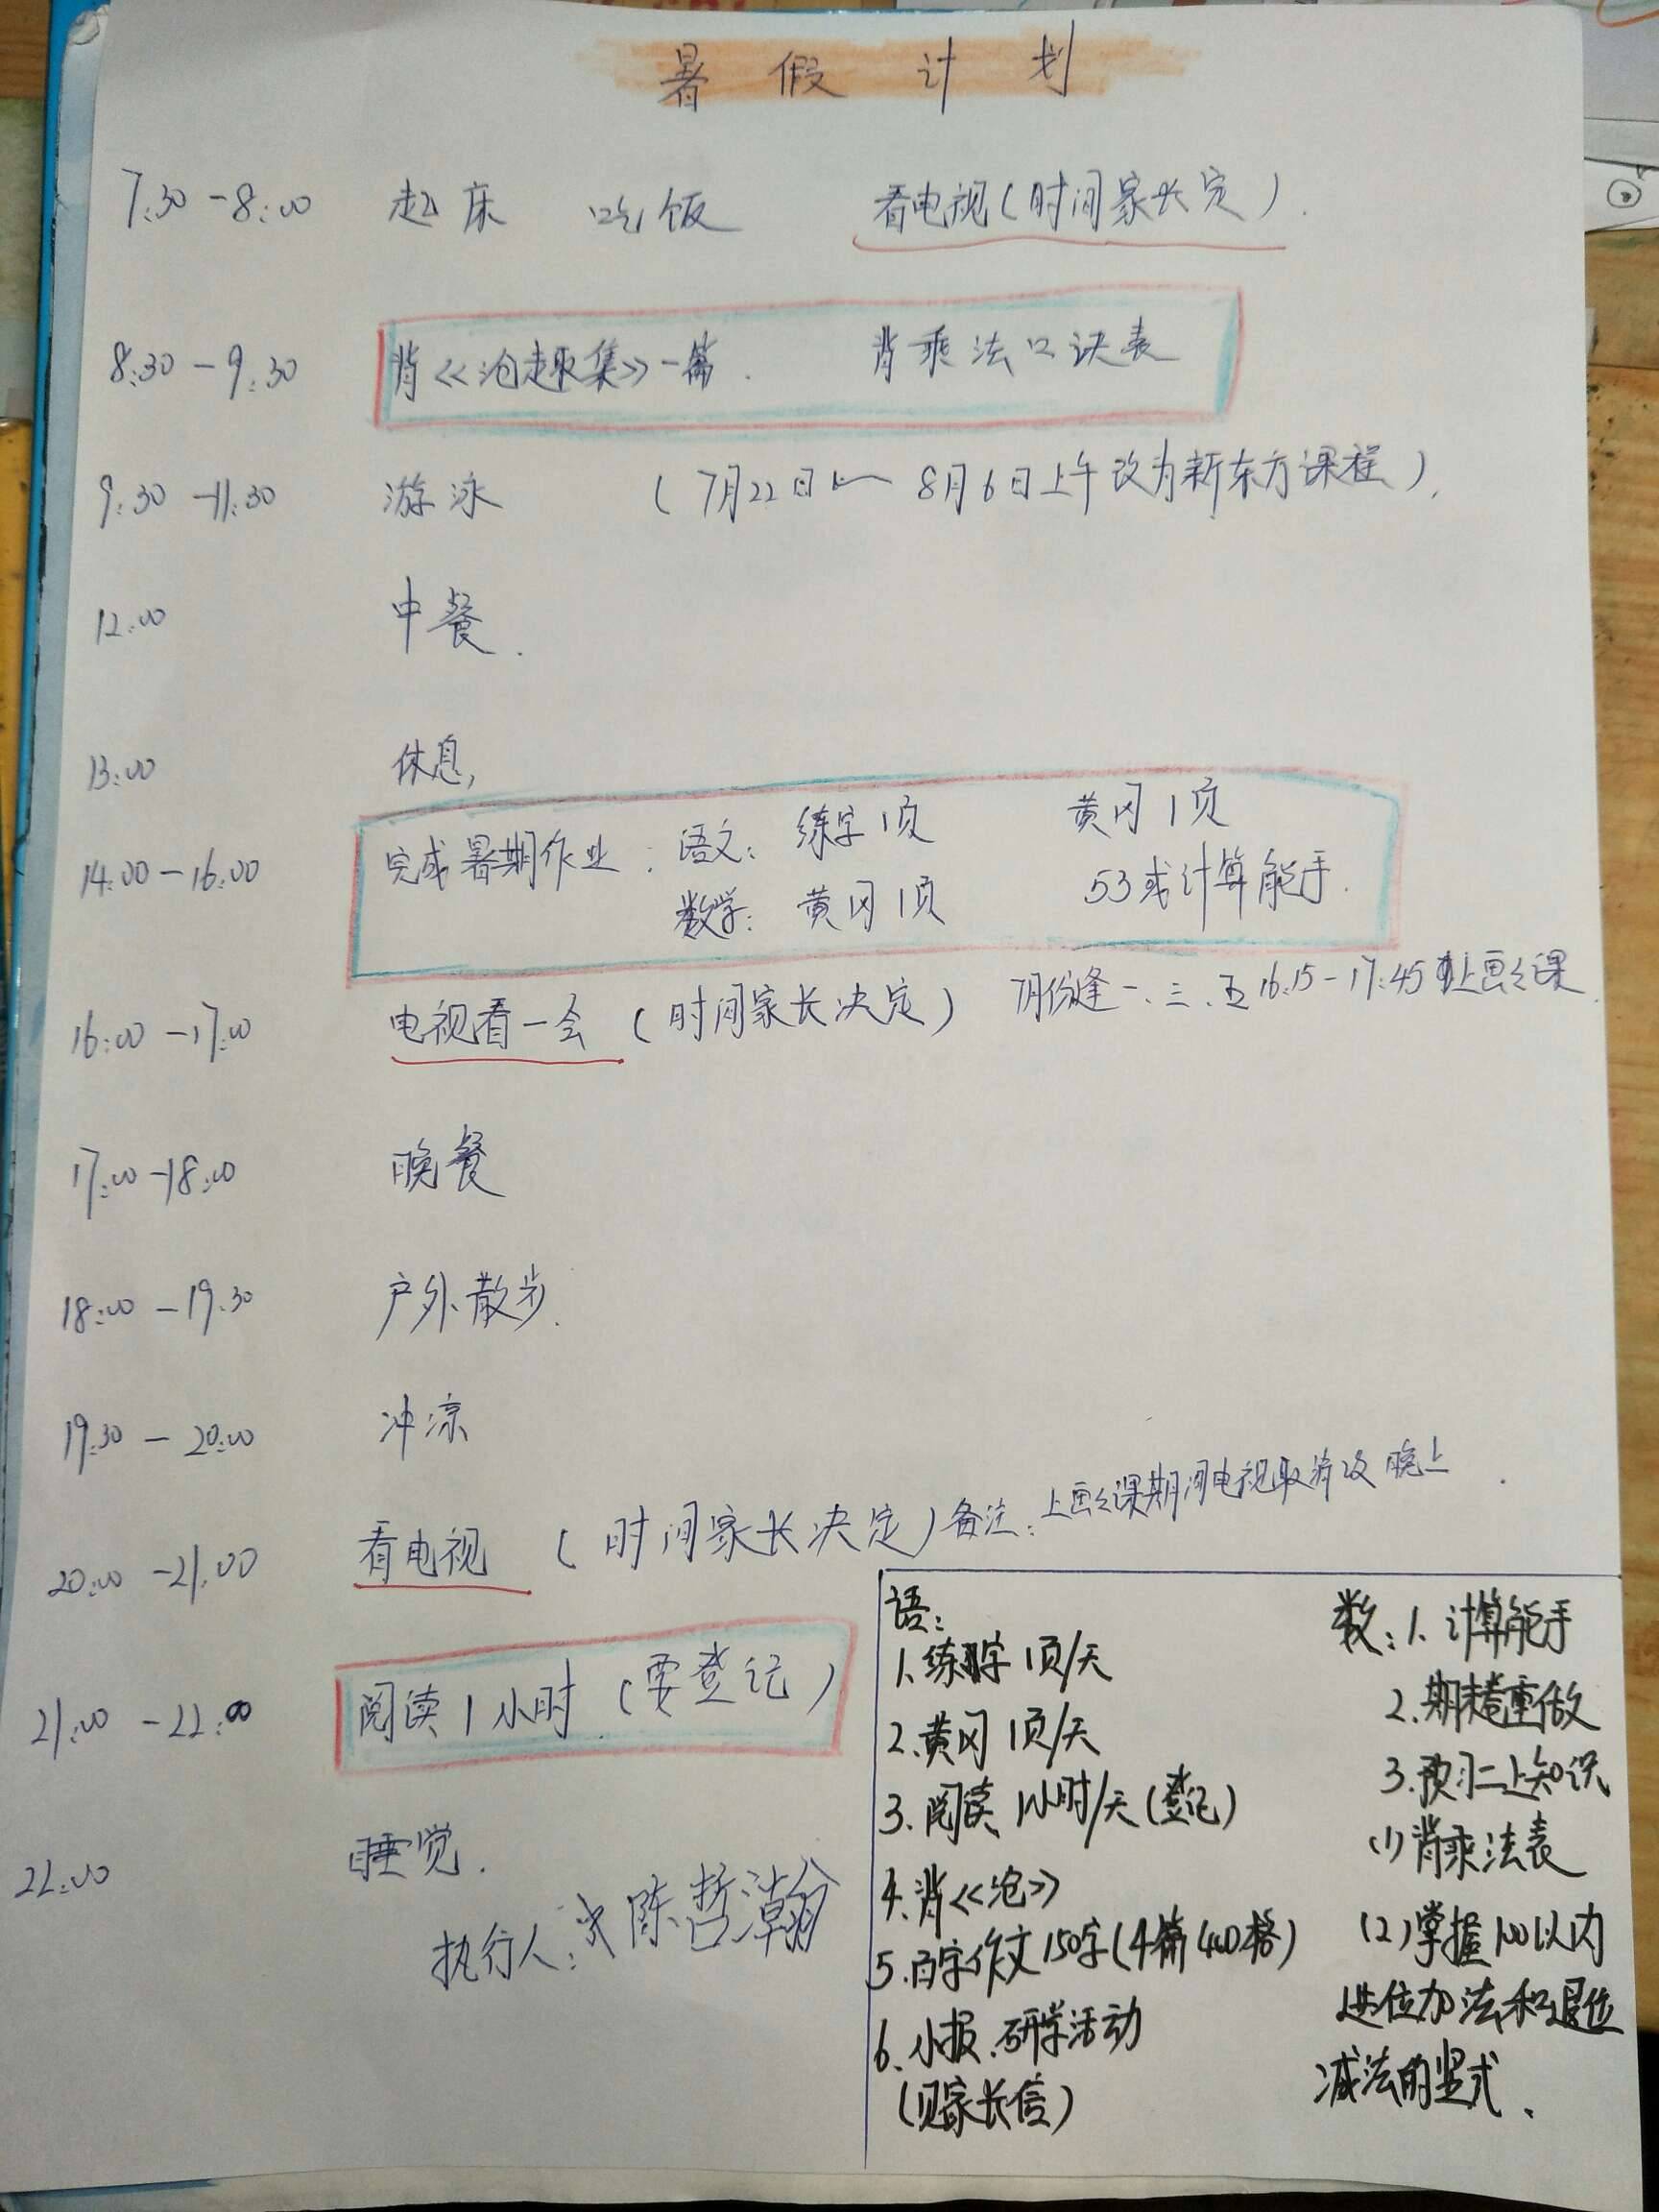 暑假计划
7:30-8:00 起床 吃饭 看电视(时间家长定).
8:30-9:30 背《沧趣集》一篇. 背乘法口诀表
9:30-11:30 游泳 (7月22日~8月6日上午改为新东方课程).
12:00 中餐.
13:00 休息,
14:00-16:00 完成暑期作业: 语文: 练字1页 黄冈1页
数学: 黄冈1页 53或计算能手.
16:00-17:00 电视看一会 (时间家长决定) 7月份逢一、三、五16:15-17:45上画画课.
17:00-18:00 晚餐
18:00-19:30 户外散步.
19:30-20:00 冲凉
20:00-21:00 看电视 (时间家长决定) 备注: 上画画课期间电视取消改晚上.
21:00-22:00 阅读1小时.(要登记)
22:00 睡觉.
执行人: 陈哲瀚
语:
1、练字1页/天
2、黄冈1页/天
3、阅读1小时/天(登记)
4、背《沧》
5、百字作文150字(4篇400格)
6、小报、研学活动
(见家长信)
数: 1、计算能手
2、期末卷重做
3、预习二上知识
(1)背乘法表
(2)掌握100以内
进位加法和退位
减法的竖式、